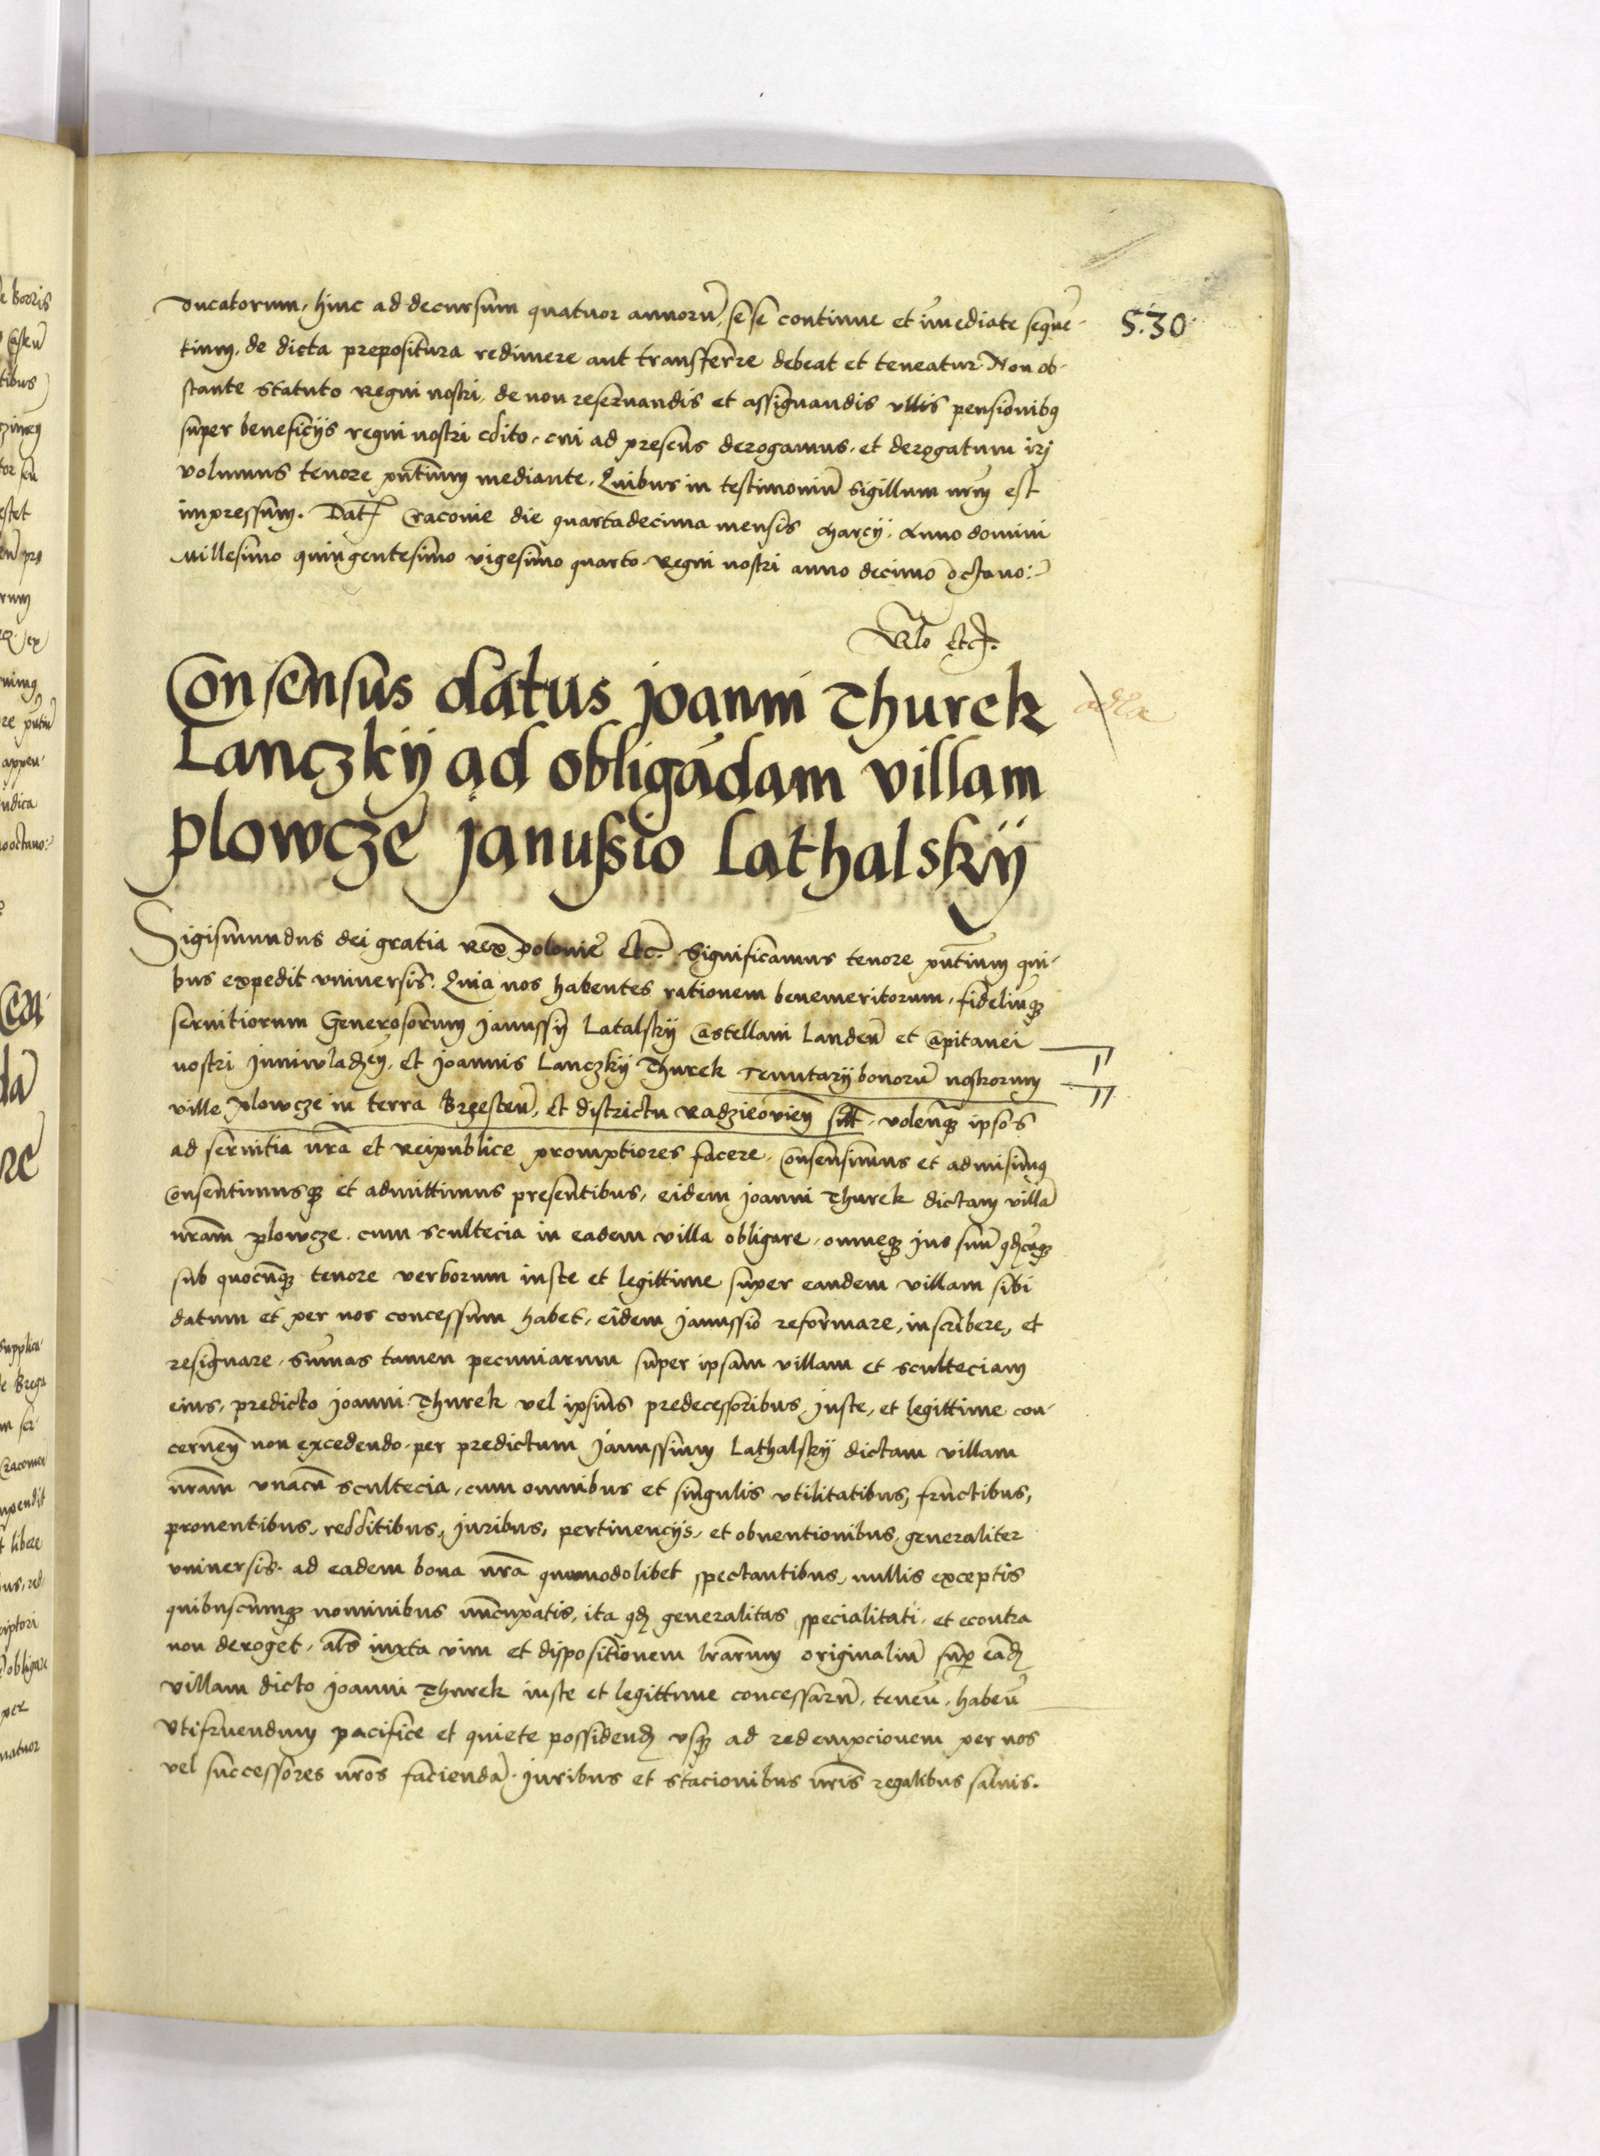 ducatorum, hinc ad decursum quatuor annorū, sese continue et īmediate seque-
tium, de dicta prepositura redimere aut transferre debeat et teneatur. Non ob-
stante statuto Regni nostri, de non reseruandis et assignandis vllis pensionibꝯ
super beneficijs regni nostri edito, cui ad presens derogamus, et derogatum irj
volumus tenore pn̄tium mediante. Quibus in testimoniū Sigillum nr̄m est
impressum. Dat Cracouie die quartadecima mensis Marcij. Anno domini
Millesimo quingentesimo vigesimo quarto. Regni nostri anno decimo octauo:
Rlo etc.
5.30
Consensus datus joanni Thurek
Lanczkij ad obligādam villam
plowcze janussio Lathalskij
Sigismundus dei gratia Rex polonie etc. Significamus tenore pn̄tium qui-
bus expedit vniuersis. Quia nos habentes rationem benemeritorum, fideliūqꝫ
seruitiorum Generosorum Janussij Latalskij Castellani Landeñ et Capitanei
nostri Juniwladzeñ, et Joannis Lanczkij Thurek Tenutarij bonorū nostrorum
ville Plowcze in terra Brzesteñ, et districtu Radzieouieñ sitt, volen̄qꝫ ipsos
ad seruitia nr̄a et Reipublice promptiores facere, Consensimus et admisimꝯ
Consentimusqꝫ et admittimus presentibus, eidem Joanni Thurek dictam villā
nr̄am plowcze, cum scultecia in eadem villa obligare, omneqꝫ jus suū qdcūqꝫ
sub quocūqꝫ tenore verborum iuste et legittime super eandem villam sibi
datum et per nos concessum habet, eidem Janussio reformare, inscribere, et
resignare, Sūmas tamen pecuniarum super ipsam villam et sculteciam
eius, predicto Joanni Thurek vel ipsius predecessoribus juste, et legittime con-
cerneñ non excedendo, per predictum Janussium Lathalskij dictam villam
nr̄am vnacū scultecia, cum omnibus et singulis vtilitatibus, fructibus,
prouentibus, redditibus, juribus, pertinencijs, et obuentionibus, generaliter
vniuersis, ad eadem bona nr̄a quomodolibet spectantibus, nullis exceptis
quibuscumqꝫ nominibus nūcupatis, ita qd generalitas specialitati, et econtra
non deroget, als iuxta vim et dispositionem lr̄arum originaliū sup eād
villam dicto Joanni Thurek iuste et legittime concessarū, teneñ, habeñ
vtifruendum pacifice et quiete possidend vsqꝫ ad redempcionem per nos
vel successores nr̄os faciendā. Juribus et stacionibus nr̄is regalibus saluis.